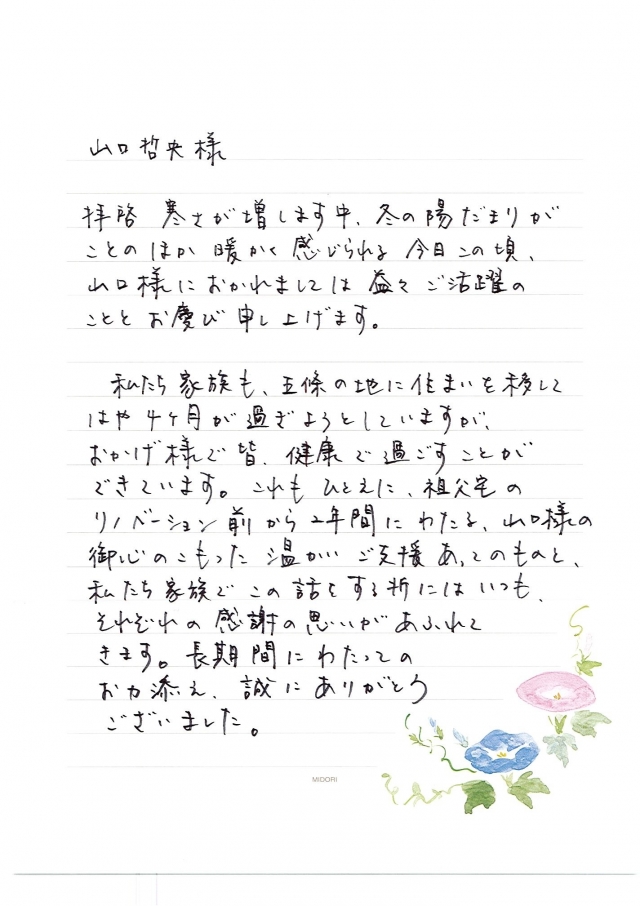 山口哲央様
拝啓 寒さが増します中、冬の陽だまりが
ことのほか 暖かく感じられる 今日この頃、
山口様におかれましては 益々ご活躍の
こととお慶び申し上げます。
私たち家族も、五條の地に住まいを移して
はや4ヶ月が過ぎようとしていますが、
おかげ様で皆、健康で過ごすことが
できています。これもひとえに、祖父宅の
リノベーション前から2年間にわたる、山口様の
御心のこもった温かいご支援あってのものと、
私たち家族でこの話をする折にはいつも、
それぞれの感謝の思いがあふれて
きます。長期間にわたっての
お力添え、誠にありがとう
ございました。
MIDORI